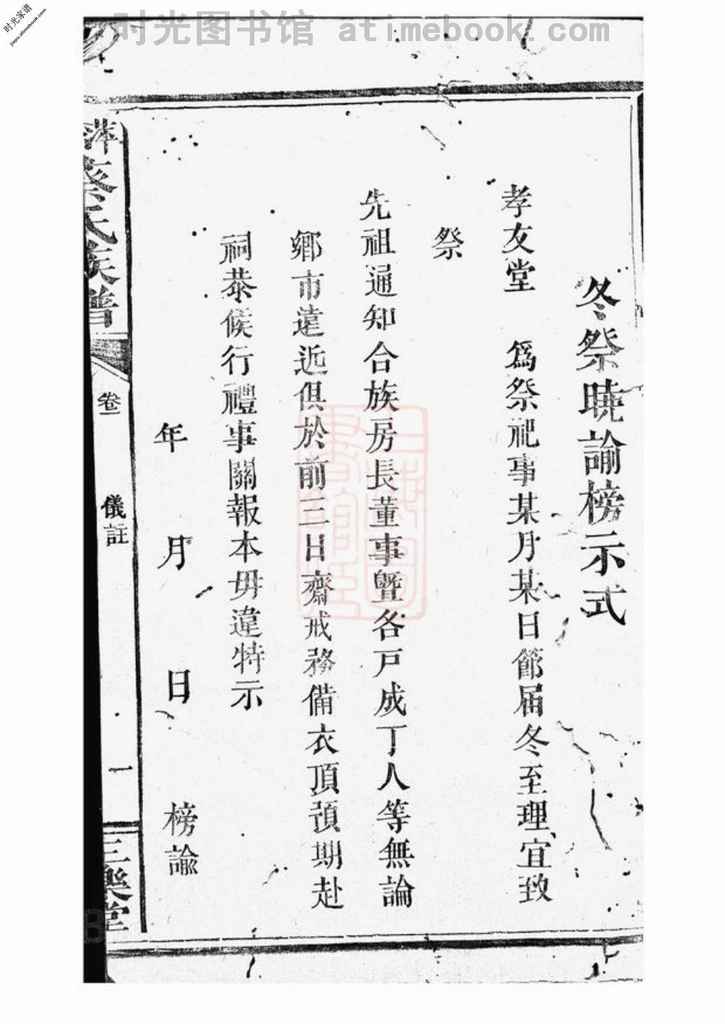 时光图书馆 atimebook.com
时光家谱
冬祭曉諭榜示式
孝友堂 爲祭祀事某月某日節届冬至理宜致
祭
先祖通知合族房長董事曁各戸成丁人等無論
鄉市遠近俱於前三日齋戒務備衣頂預期赴
祠恭候行禮事關報本毋違特示
年 月 日 榜諭
萍 蔡氏族譜
卷一 儀註
一
三樂堂